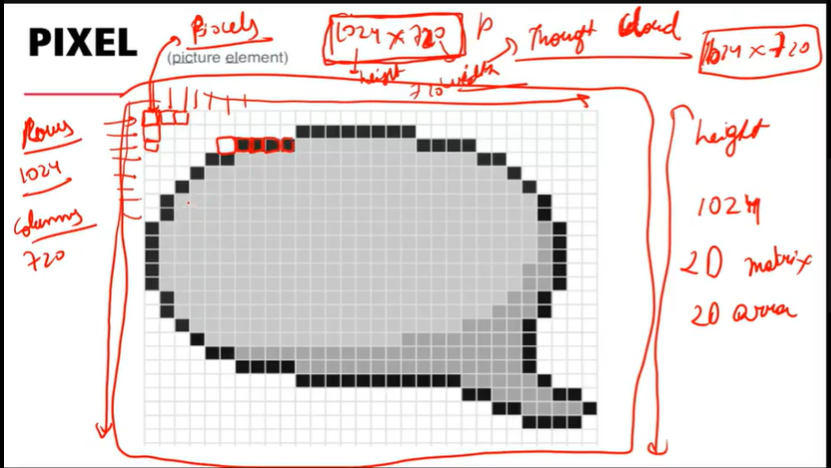 PIXEL
Pixels
(picture element)
1024 × 720 p
height
width
720
Thought Cloud
1024 × 720
Rows
1024
Columns
720
height
1024
2D matrix
2D array